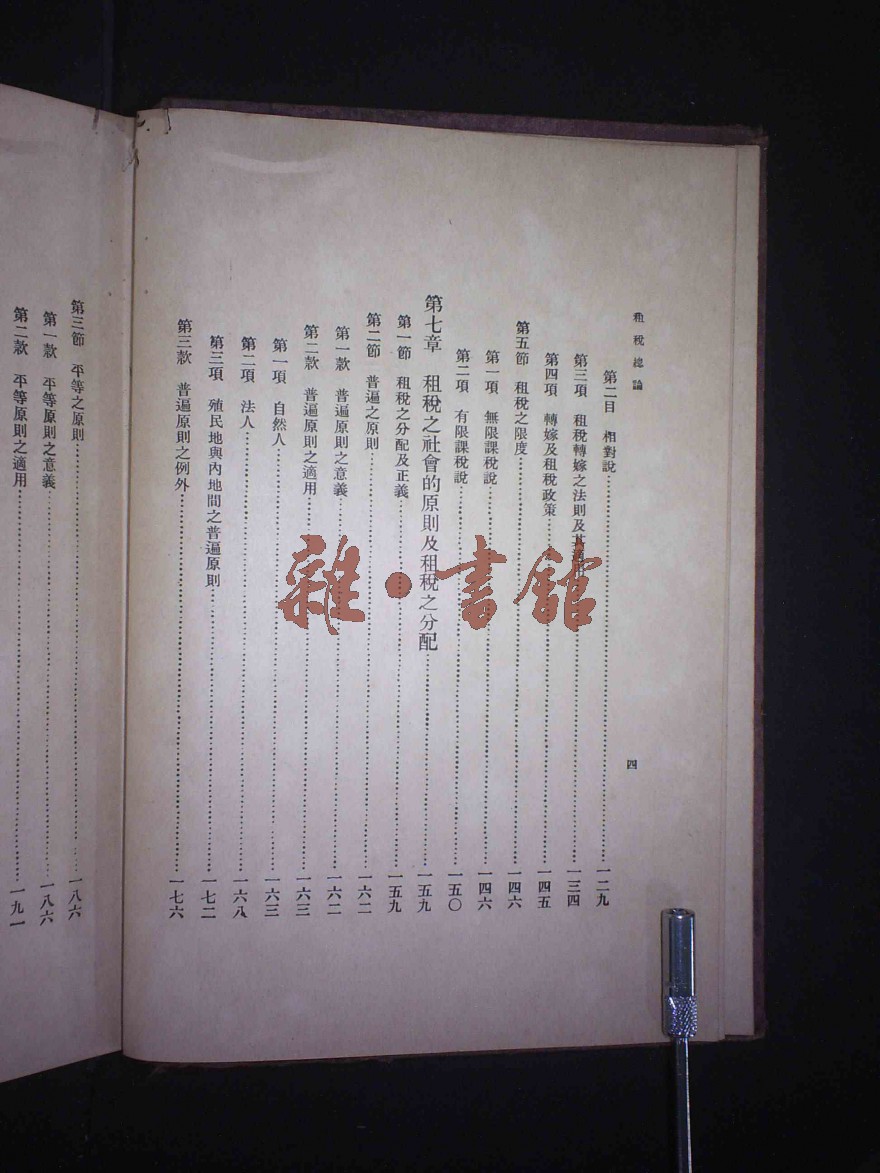 租稅總論
四
第二目 相對說 一二九
第三項 租稅轉嫁之法則及其適用 一三四
第四項 轉嫁及租稅政策 一四五
第五節 租稅之限度 一四六
第一項 無限課稅說 一四六
第二項 有限課稅說 一五〇
第七章 租稅之社會的原則及租稅之分配 一五九
第一節 租稅之分配及正義 一五九
第二節 普遍之原則 一六二
第一款 普遍原則之意義 一六二
第二款 普遍原則之適用 一六三
第一項 自然人 一六三
第二項 法人 一六八
第三項 殖民地與內地間之普遍原則 一七二
第三款 普遍原則之例外 一七六
第三節 平等之原則 一八六
第一款 平等原則之意義 一八六
第二款 平等原則之適用 一九一
雜·書館